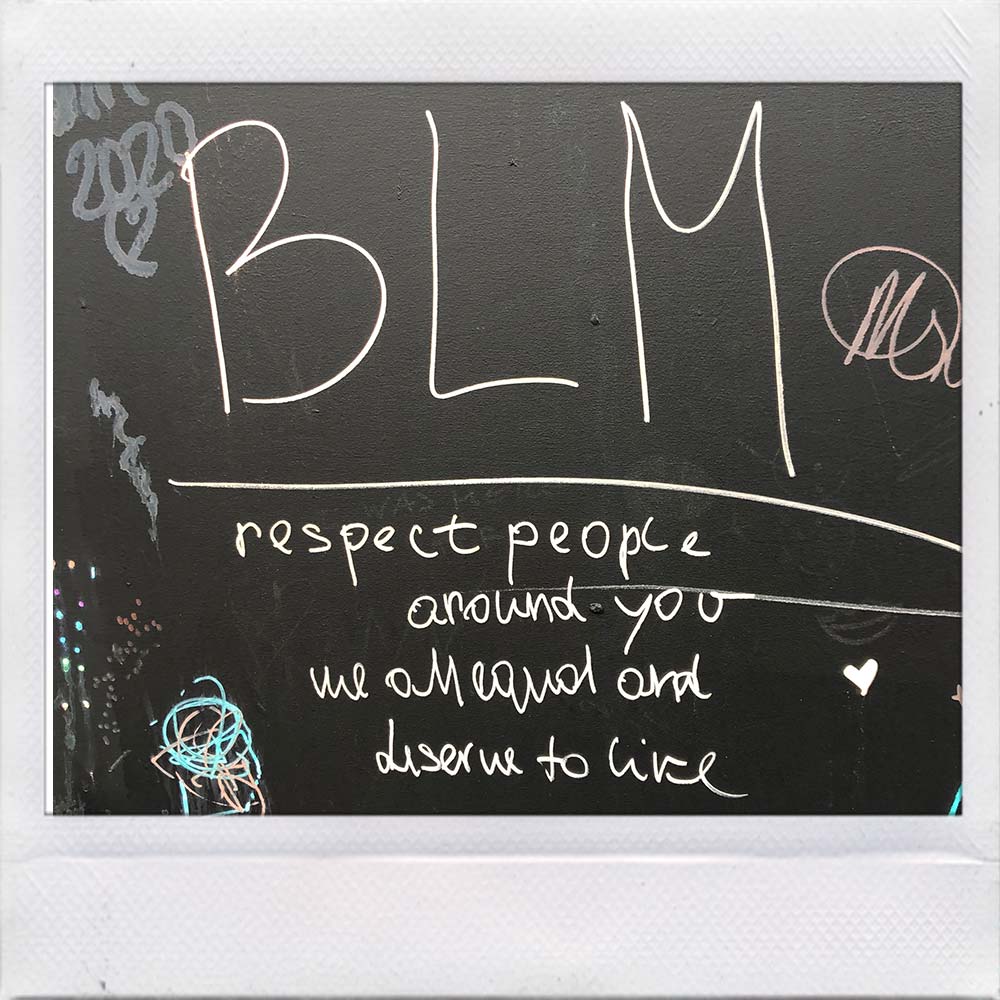 2020
BLM
respect people
around you
we all equal and
diserve to live